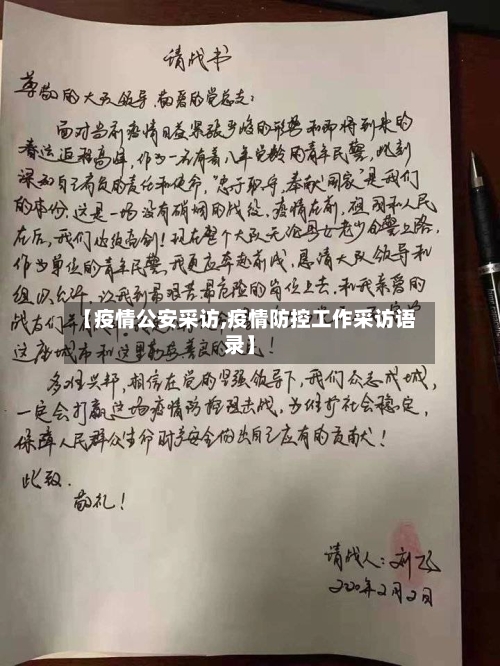 请战书
尊敬的大队领导,敬爱的党总支:
面对当前疫情日益紧张严峻的形势和即将到来的
春运返程高峰,作为一名有着八年党龄的青年民警,此刻
深知自己肩负的责任和使命,"忠于职守,奉献国家"是我们
的本份,这是一场没有硝烟的战役,疫情在前,祖国和人民
在后,我们必须亮剑!现在整个大队无论男女老少全警上路,
作为单位的青年民警,我更应奔赴前线,恳请大队领导和
组织允许,让我到最艰苦最危险的岗位上去,和我亲爱的
战友们
【疫情公安采访,疫情防控工作采访语
录】
这座城市和这里勤劳善良的
多难兴邦,相信在党的坚强领导下,我们众志成城,
一定会打赢这场疫情防控阻击战,为维护社会稳定,
保障人民群众生命财产安全做出自己应有的贡献!
此致.
敬礼!
请战人:刘飞
2020年2月2日